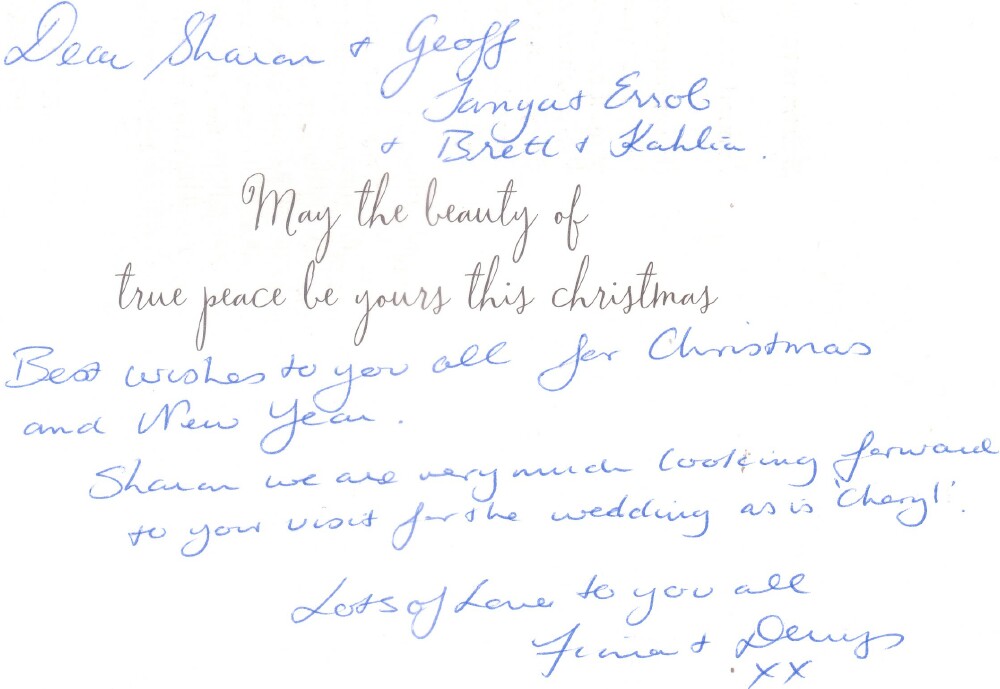 Dear Sharon + Geoff.
Tanya + Errol
+ Brett + Kahlia.
May the beauty of
true peace be yours this christmas
Best wishes to you all for Christmas
and New Year.
Sharon we are very much looking forward
to your visit for the wedding as is 'Cheryl'.
Lots of Love to you all
+ Denys
xx